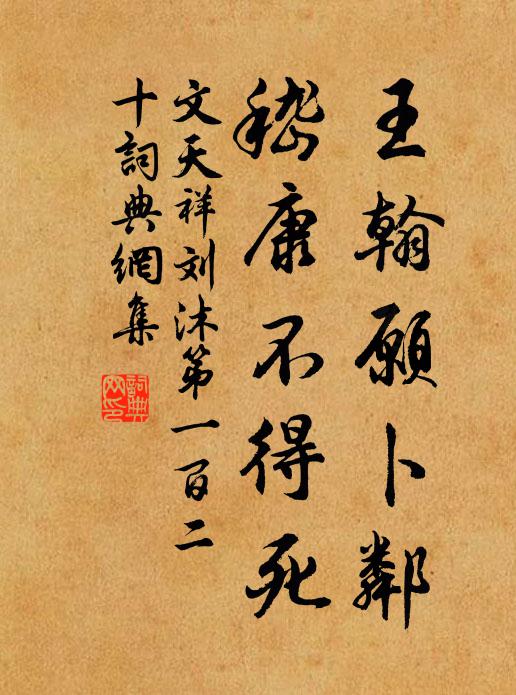 王翰願卜鄰
嵇康不得死
文天祥刘沐第一百二
十詞典網集
詞典
网印